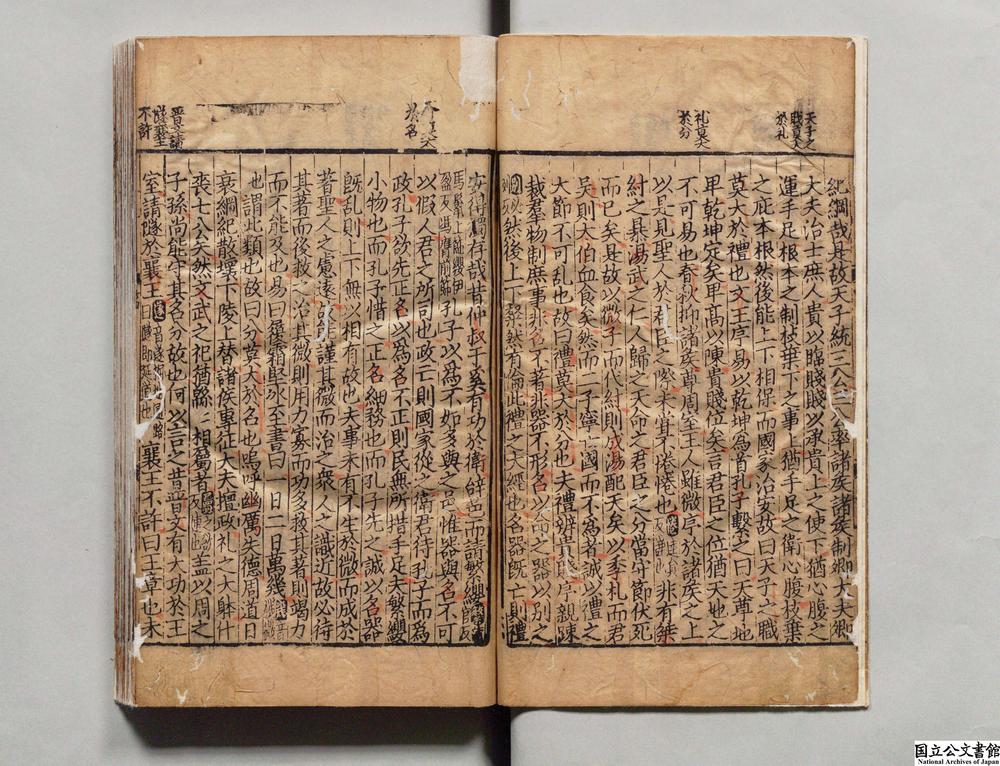 天子之
職莫大
於礼
礼莫大
於分
紀綱哉是故天子統三公三公率諸侯諸侯制卿大夫卿
大夫治士庶人貴以臨賤賤以承貴上之使下猶心腹之
運手足根本之制枝葉下之事上猶手足之衛心腹枝葉
之庇本根然後能上下相保而國家治安故曰天子之職
莫大於禮也文王序易以乾坤為首孔子繫之曰天尊地
卑乾坤定矣卑高以陳貴賤位矣言君臣之位猶天地之
不可易也春秋抑諸侯尊周室王人雖微序於諸侯之上
以是見聖人於君臣之際未甞不惓惓也非有桀
紂之暴湯武之仁人歸之天命之君臣之分當守節伏死
而已矣是故以微子而代紂則成湯配天矣以季札而君
吳則太伯血食矣然而二子寧亡國而不為者誠以禮之
大節不可乱也故曰禮莫大於分也夫禮辨貴賤序親疎
裁羣物制庶事非名不著非器不形名以命之器以別之
然後上下粲然有倫此禮之大經也名器既亡則禮
莫大
於名
晉
隧襄王
不許
安得獨存哉昔仲叔于奚有功於衛辞邑而請繁纓
孔子以為不如多與之邑惟器與名不可
以假人君之所司也政亡則國家從之衛君待孔子而為
政孔子欲先正名以為名不正則民無所措手足夫繁纓
小物也而孔子惜之正名細務也而孔子先之誠以名器
既乱則上下無以相有故也夫事未有不生於微而成於
著聖人之慮遠故能謹其微而治之衆人之識近故必待
其著而後救之治其微則用力寡而功多救其著則竭力
而不能及也易曰履霜堅氷至書曰一日二日萬幾
也謂此類也故曰分莫大於名也嗚呼幽厲失德周道日
衰綱紀散壞下陵上替諸侯專征大夫擅政礼之大躰什
喪七八矣然文武之祀猶緜緜相屬者蓋以周之
子孫尚能守其名分故也何以言之昔晉文有大功於王
室請隧於襄王襄王不許曰王章也未
国立公文書館
National Archives of Japan